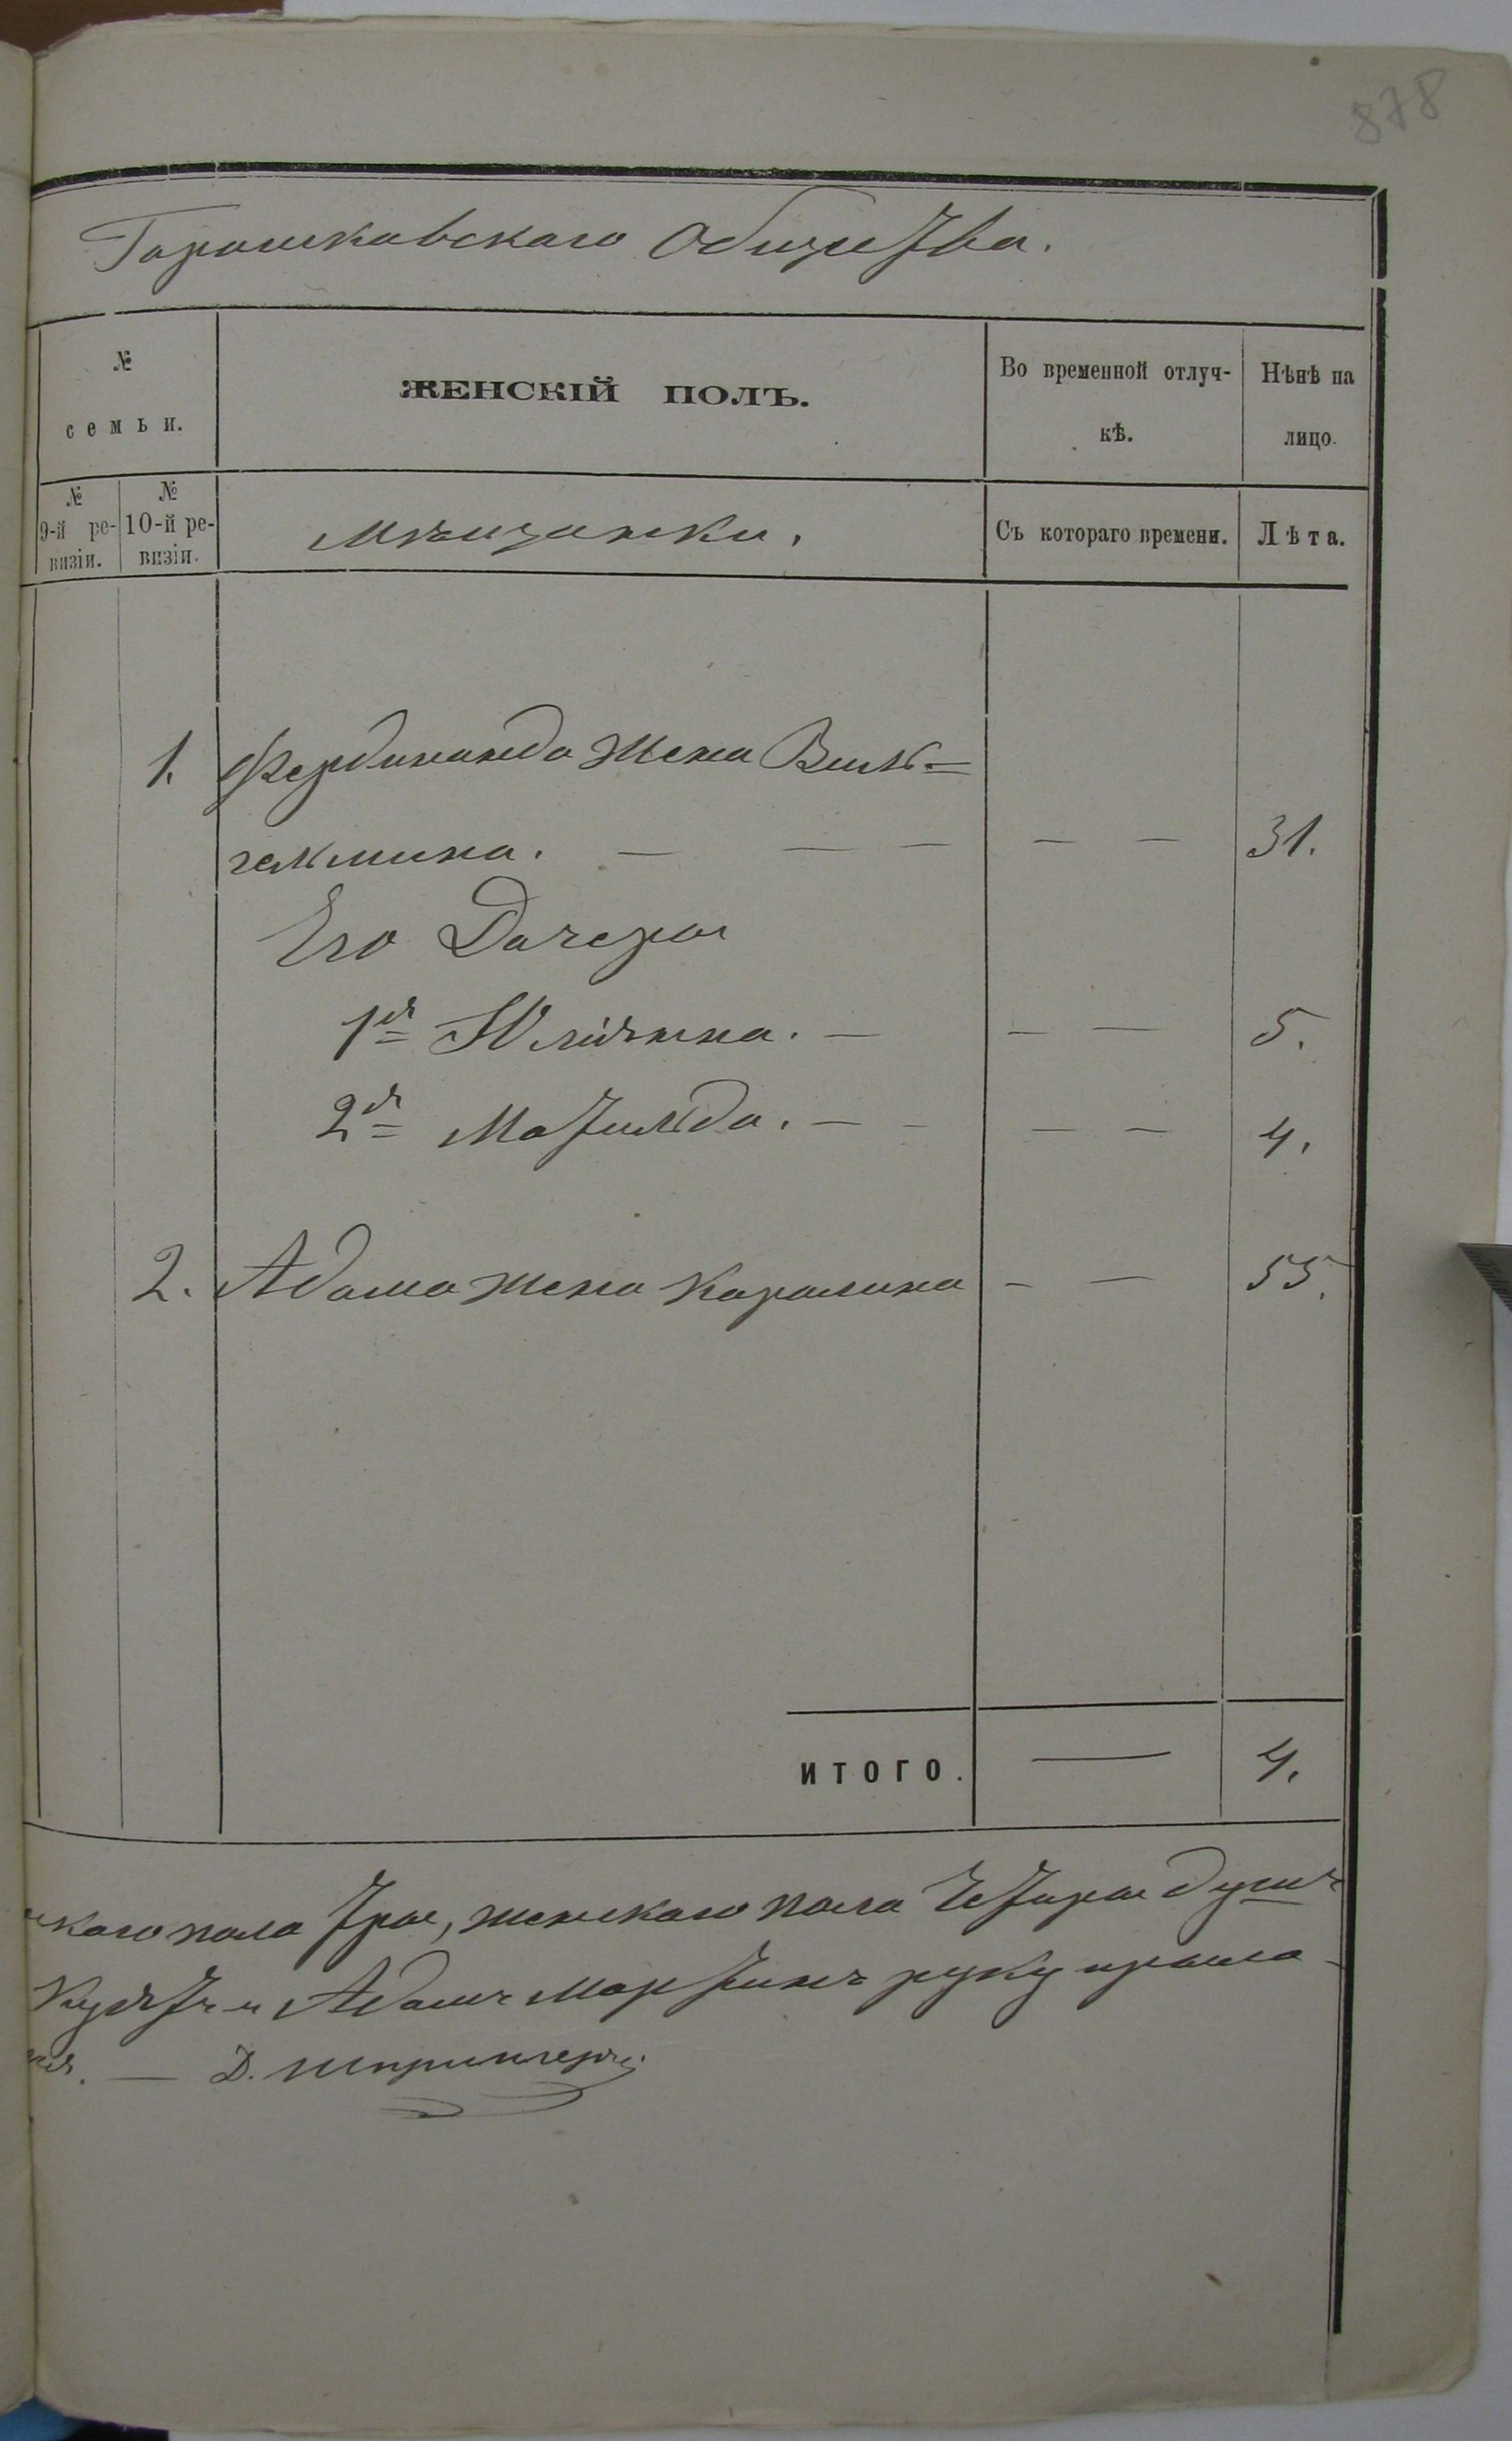 878
Горошковскаго Общества.
№ семьи.
ЖЕНСКІЙ ПОЛЪ.
Во временной отлуч-
кѣ.
Нѣнѣ на
лицо.
№ 9-й ре-
визіи.
№ 10-й ре-
визіи.
Мѣщанки.
Съ котораго времени.
Лѣта.
1. Фердинанда жена Виль=
гельмина. — — — — — 31.
Его Дочери
1я Юліянна. — — — 5.
2я Матильда. — - — — 4.
2. Адама жена Каролина - — 55.
ИТОГО. — 4.
скаго пола три, женскаго пола Четыри душъ
Адамъ Мартинъ руку прило
Д. Шпрингеръ